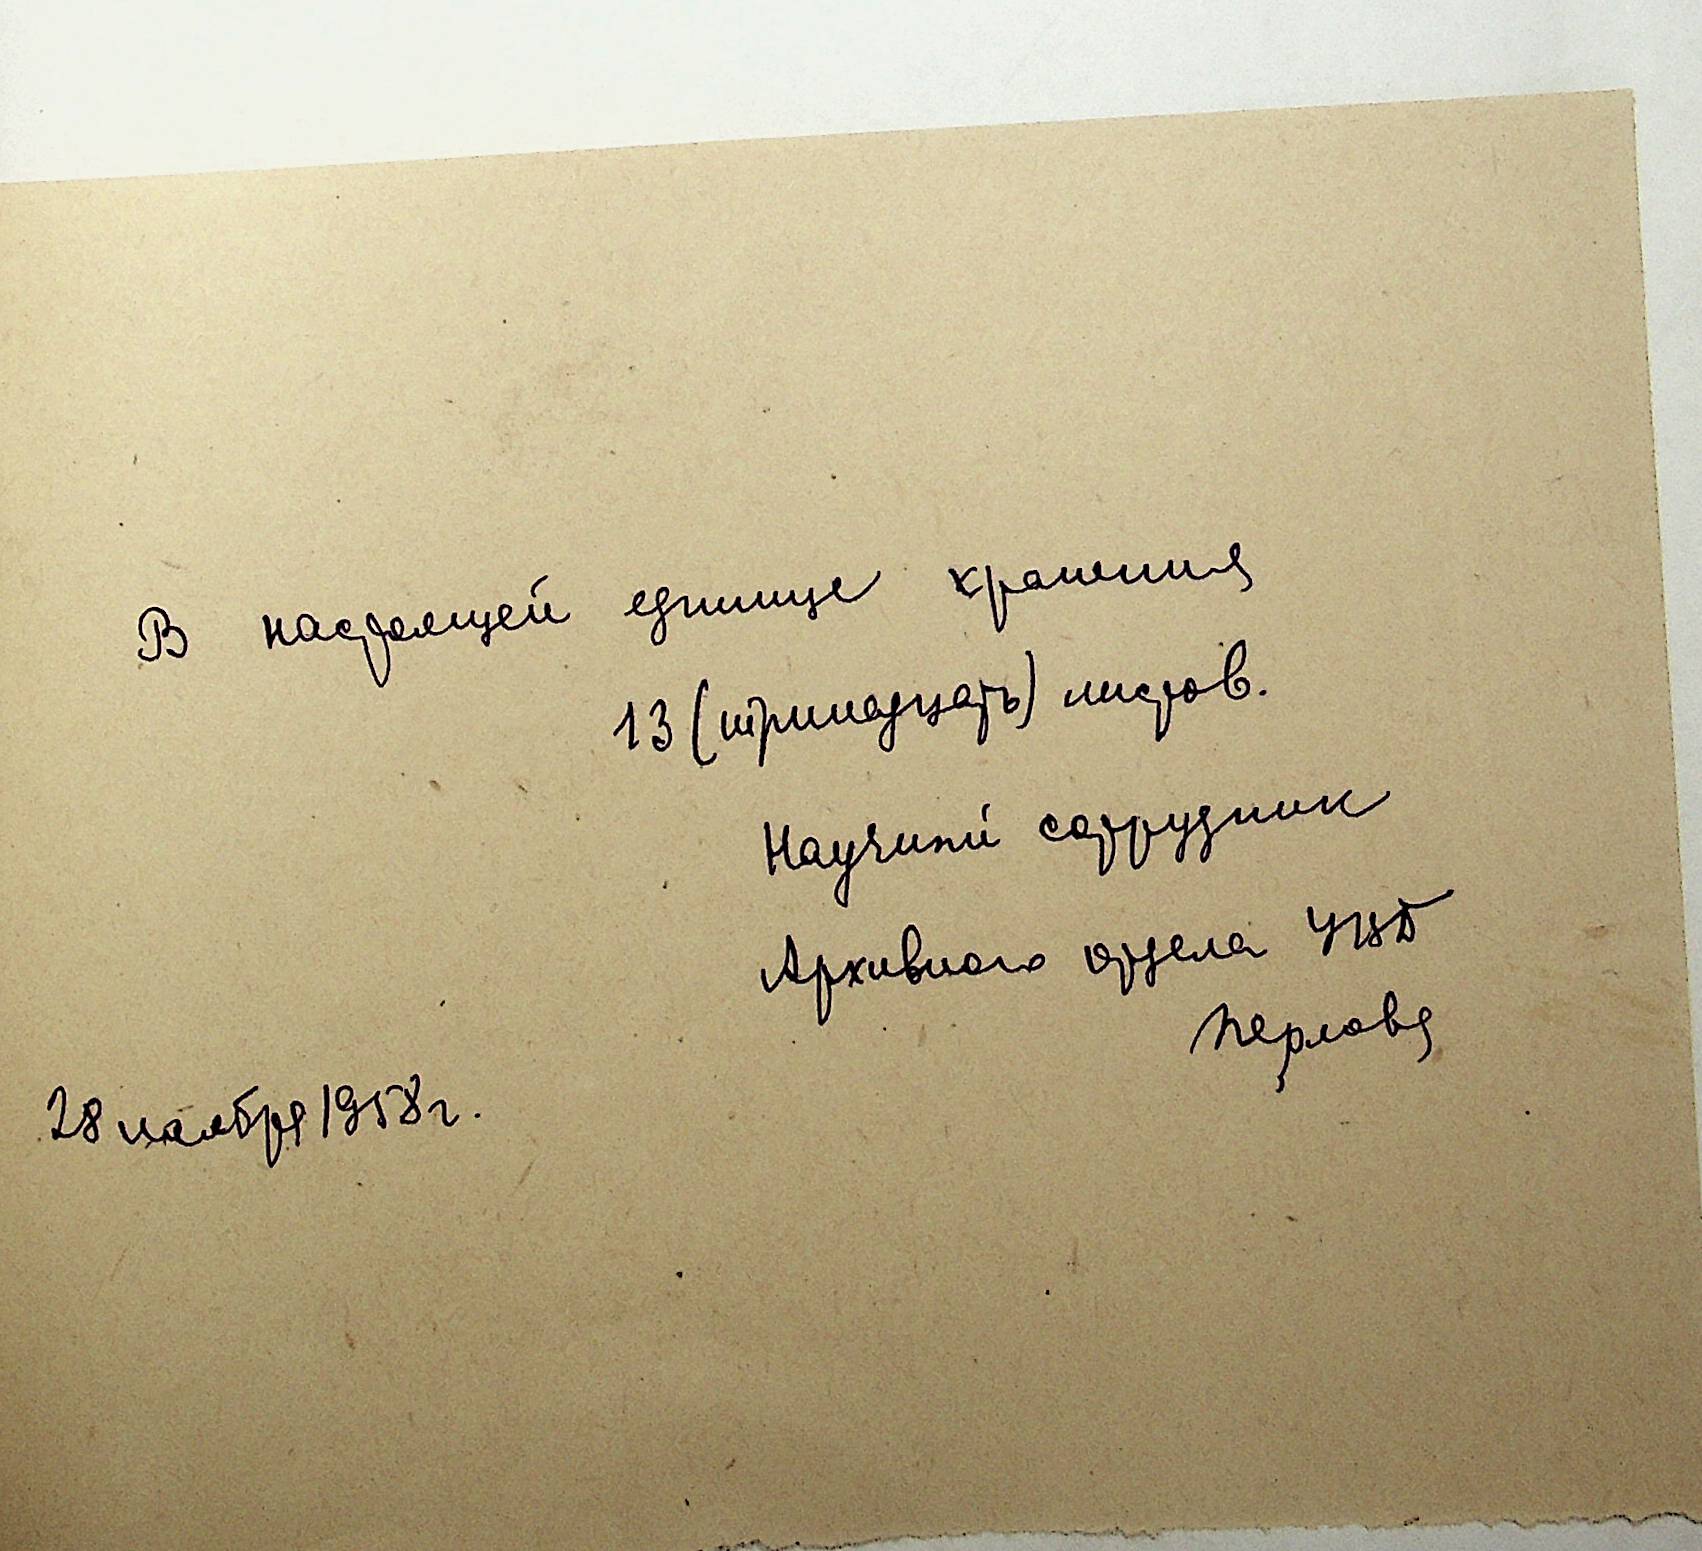 В настоящей единице хранения
13 (тринадцать) листов.
Научный сотрудник
Архивного отдела ЦНБ
Перлова
28 ноября 1958 г.